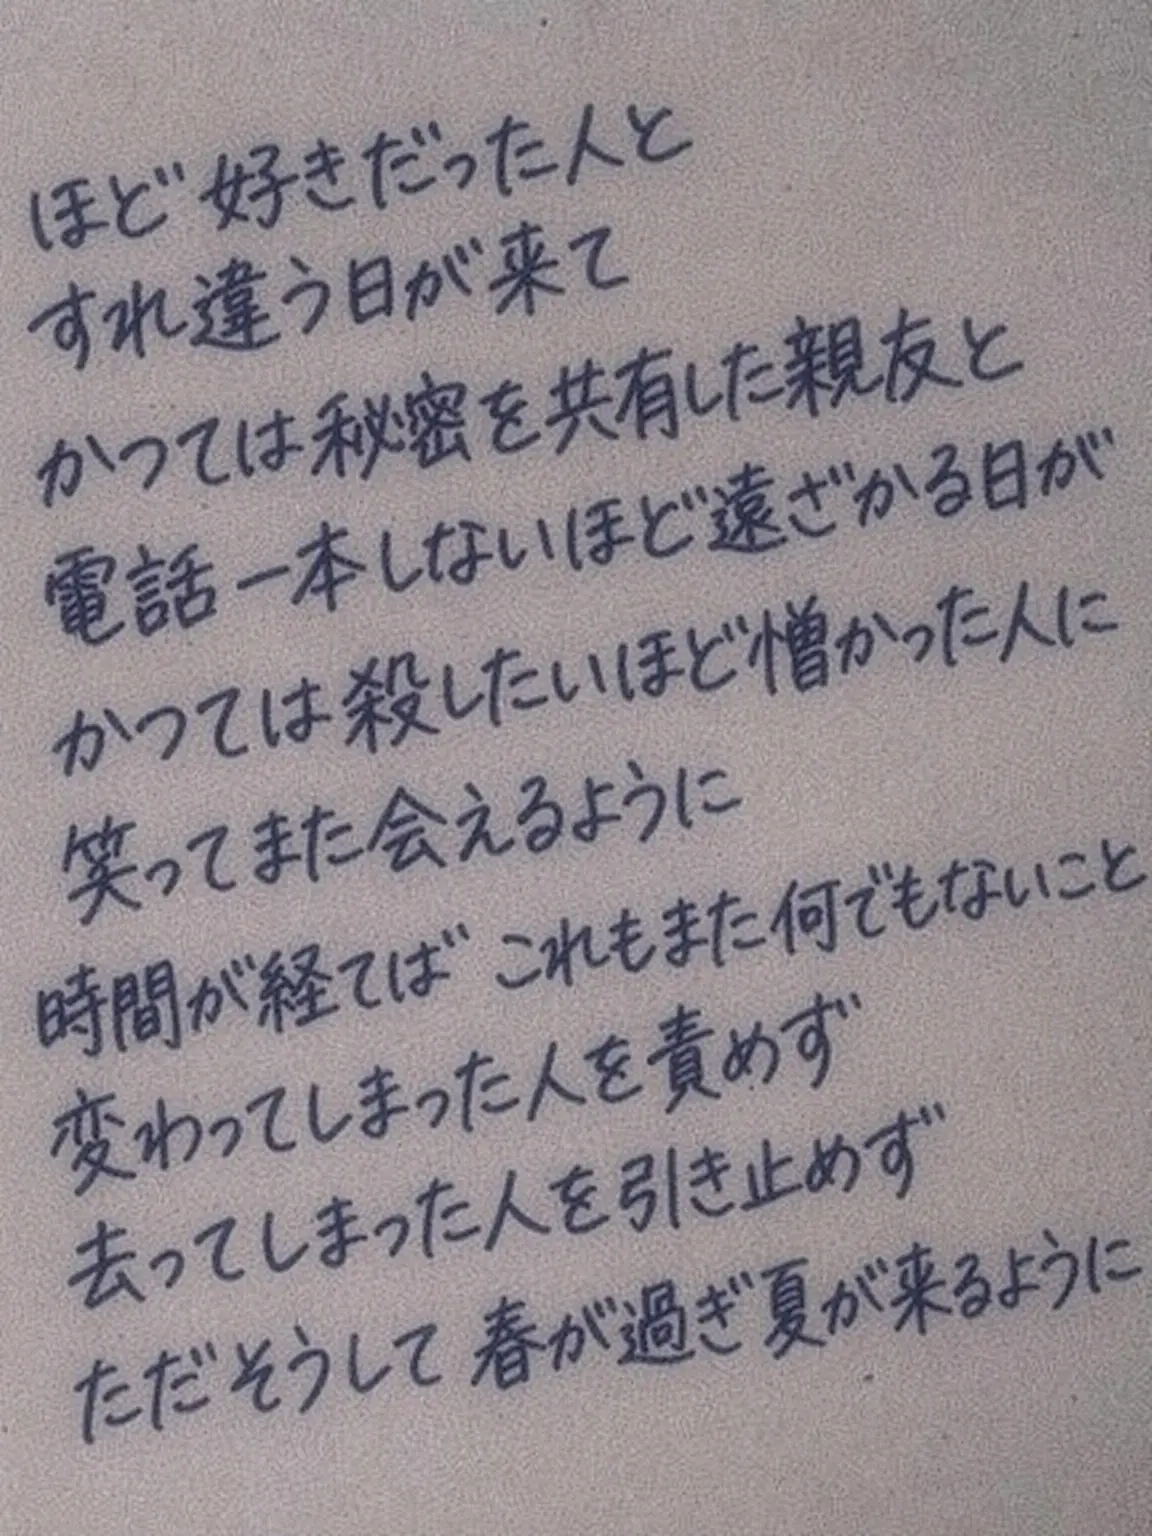 ほど 好きだった人と
すれ違う日が来て
かつては秘密を共有した親友と
電話一本しないほど遠ざかる日が
かつては殺したいほど憎かった人に
笑ってまた会えるように
時間が経てば これもまた何でもないこと
変わってしまった人を責めず
去ってしまった人を引き止めず
ただそうして 春が過ぎ夏が来るように